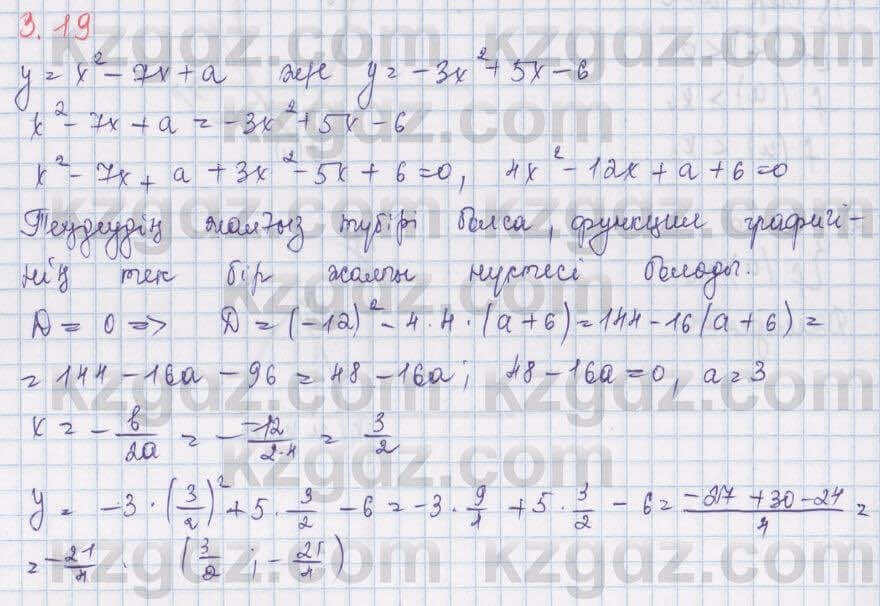 3.19
y = x² - 7x + a  же  y = -3x² + 5x - 6
x² - 7x + a = -3x² + 5x - 6
x² - 7x + a + 3x² - 5x + 6 = 0, 4x² - 12x + a + 6 = 0
Теңдеудің жалғыз түбірі болса, функция графигі-
нің тек бір жалпы нүктесі болады.
D = 0 => D = (-12)² - 4·4·(a+6) = 144 - 16(a+6) =
= 144 - 16a - 96 = 48 - 16a; 48 - 16a = 0, a = 3
x = - b/2a = - -12/2·4 = 3/2
y = -3·(3/2)² + 5·3/2 - 6 = -3·9/4 + 5·3/2 - 6 = -27+30-24/4 =
= -21/4. (3/2; -21/4)
kzgdz.com